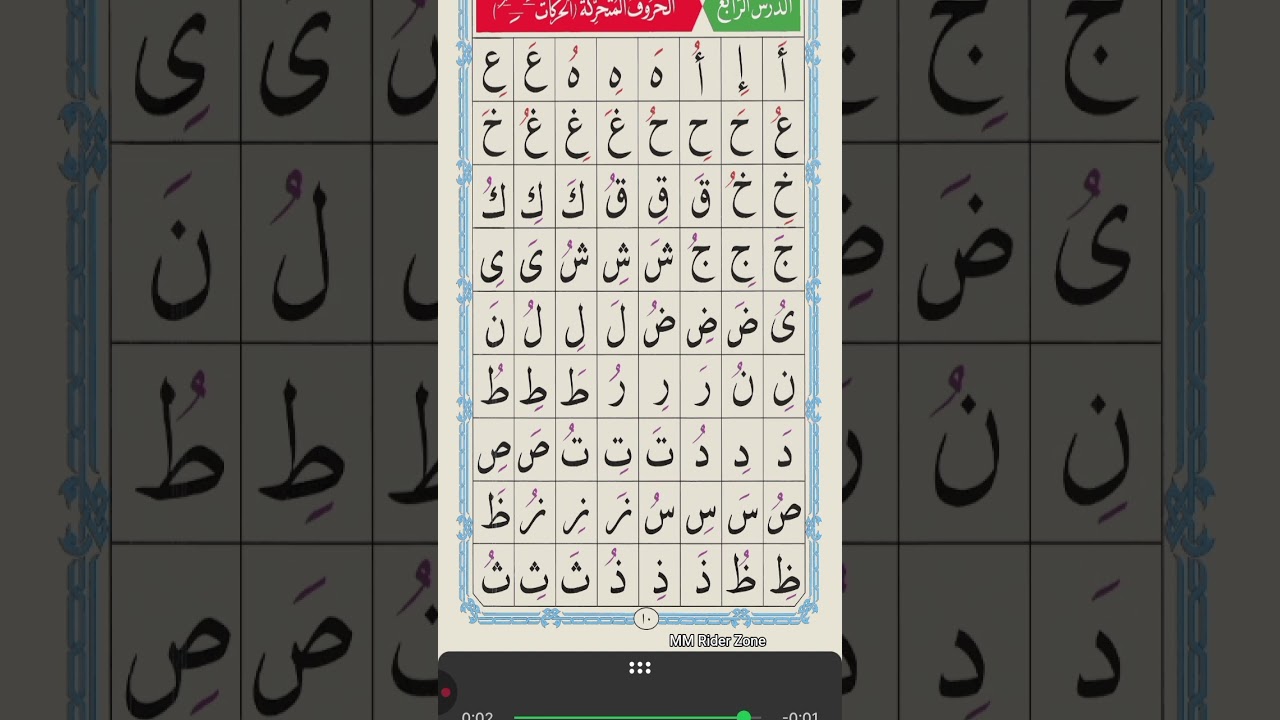 الدرس الرابع
الحروف المتحركة (الحركات
أَ إِ أُ هَ هِ هُ عَ عِ
عُ حَ حِ حُ غَ غِ غُ خَ
خِ خُ قَ قِ قُ كَ كِ كُ
جَ جِ جُ شَ شِ شُ ىَ ىِ
ىُ ضَ ضِ ضُ لَ لِ لُ نَ
نِ نُ رَ رِ رُ طَ طِ طُ
دَ دِ دُ تَ تِ تُ صَ صِ
صُ سَ سِ سُ زَ زِ زُ ظَ
ظِ ظُ ذَ ذِ ذُ ثَ ثِ ثُ
١٠
MM Rider Zone
0:02 -0:01